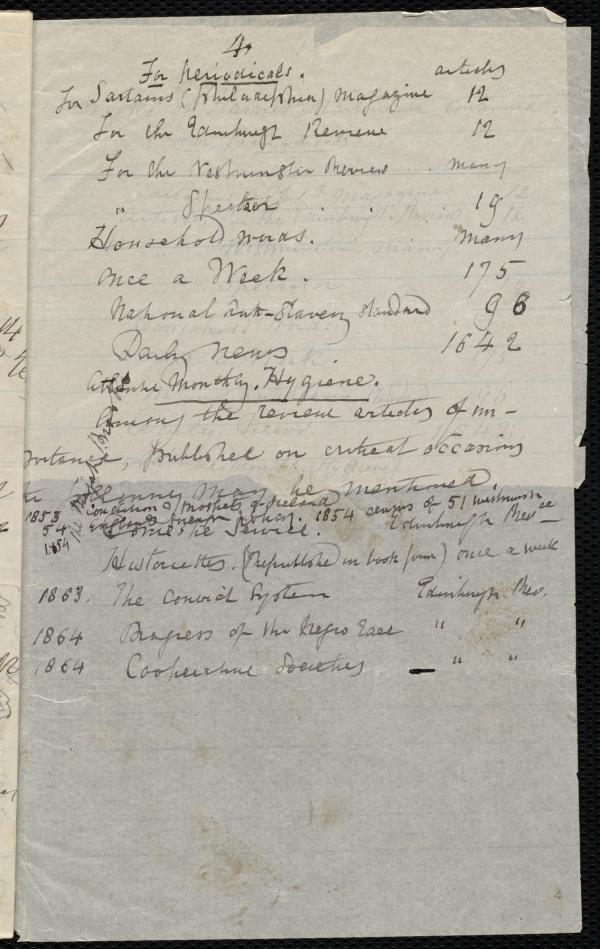 4
For periodicals. articles
For Sartains (Philadelphia) Magazine 12
For the Edinburgh Review 12
For the Westminster Review . . many
" Spectator . . . . 19
Household words. many
Once a Week. 175
National Anti-Slavery Standard 96
Daily News . 1642
Atlantic Monthly. Hygiene.
Among the review articles of im-
portance, published on critical occasions
may be mentioned.
1853 condition & prospects of Ireland
54 England's Foreign policy. 1854 census of 51 Westminster
1854
Domestic Service. Edinburgh Rev
Historiettes. (Republished in book form) once a week
1863. The Convict System Edinburgh Rev.
1864 Progress of the Negro Race " "
1864 Cooperative Societies — " "